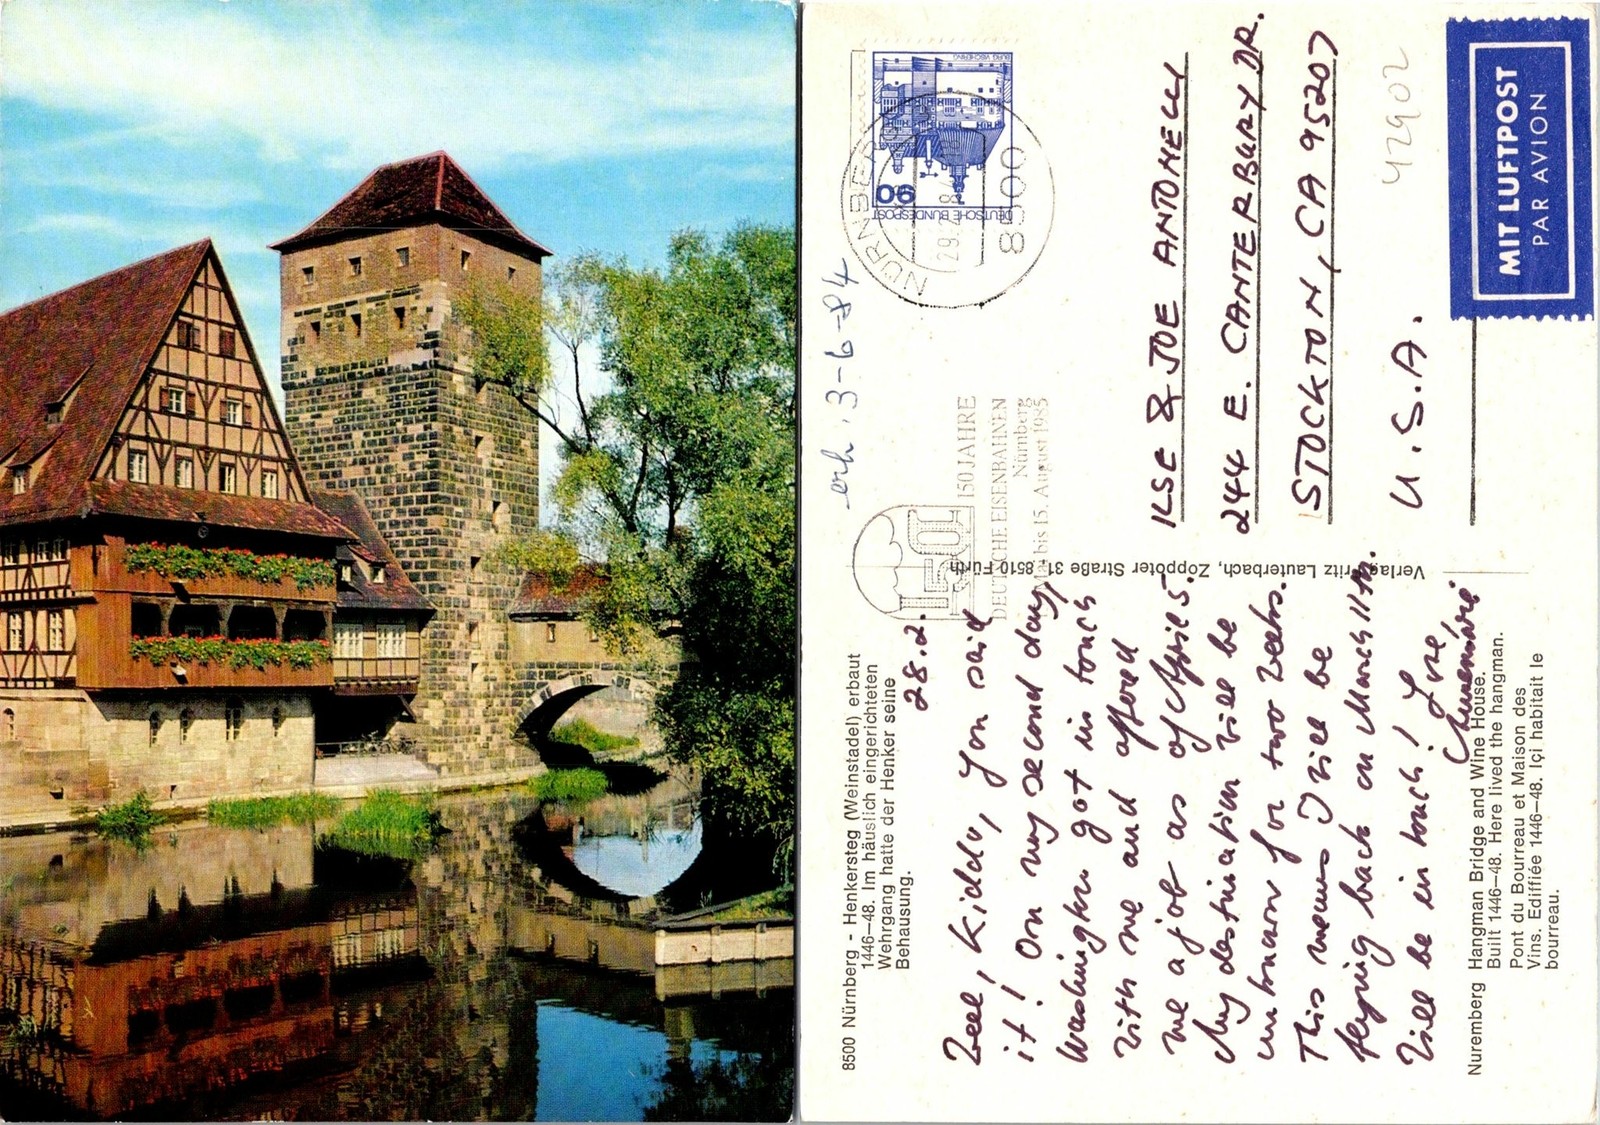 8500 Nürnberg - Henkersteg (Weinstadel) erbaut
1446—48. Im häuslich eingerichteten
Wehrgang hatte der Henker seine
Behausung.
28.2.
Well, Kiddo, you said
it! On my second day,
Washington got in touch
with me and offered
me a job as of April 5.
My destination will be
unknown for two weeks.
This means I will be
flying back on March 11th.
Will be in touch! Love,
Nuremberg Hangman Bridge and Wine House.
Built 1446—48. Here lived the hangman.
Pont du Bourreau et Maison des
Vins. Ediffiée 1446—48. Içi habitait le
bourreau.
Verlag Fritz Lauterbach, Zoppoter Straße 31 - 8510 Fürth
erh. 3-6-84
150 JAHRE
DEUTSCHE EISENBAHNEN
Nürnberg
bis 15. August 1985
BURG VISCHERING
90
DEUTSCHE BUNDESPOST
NÜRNBERG
29.2.84
8500
ILSE & JOE ANTONELLI
244 E. CANTERBURY DR.
STOCKTON, CA 95207
U.S.A.
42902
MIT LUFTPOST
PAR AVION